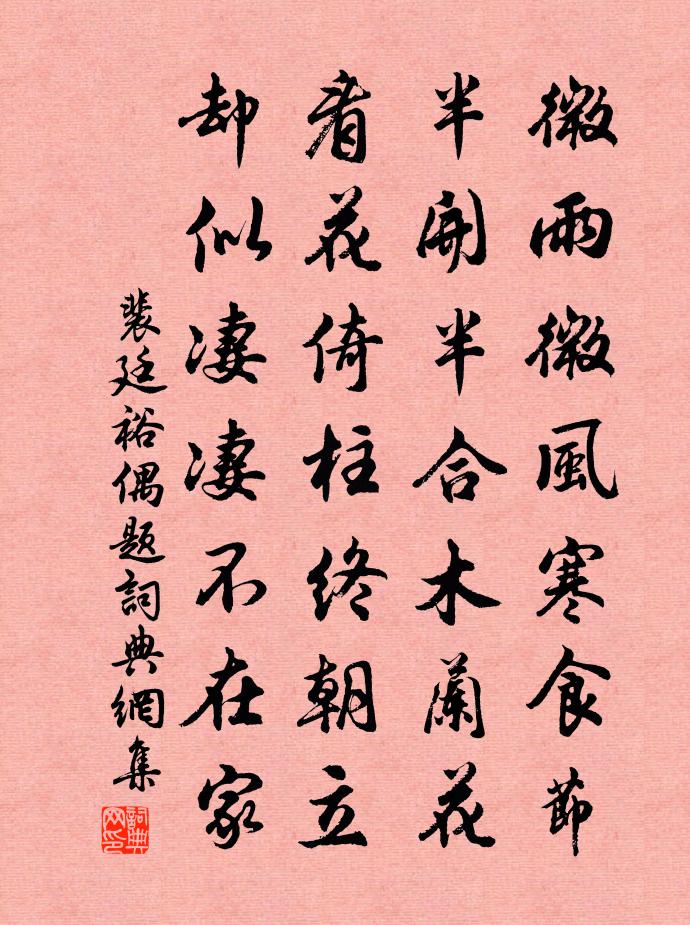 微雨微風寒食節
半開半合木蘭花
看花倚柱終朝立
却似凄凄不在家
裴廷裕偶題詞典網集
詞典网印